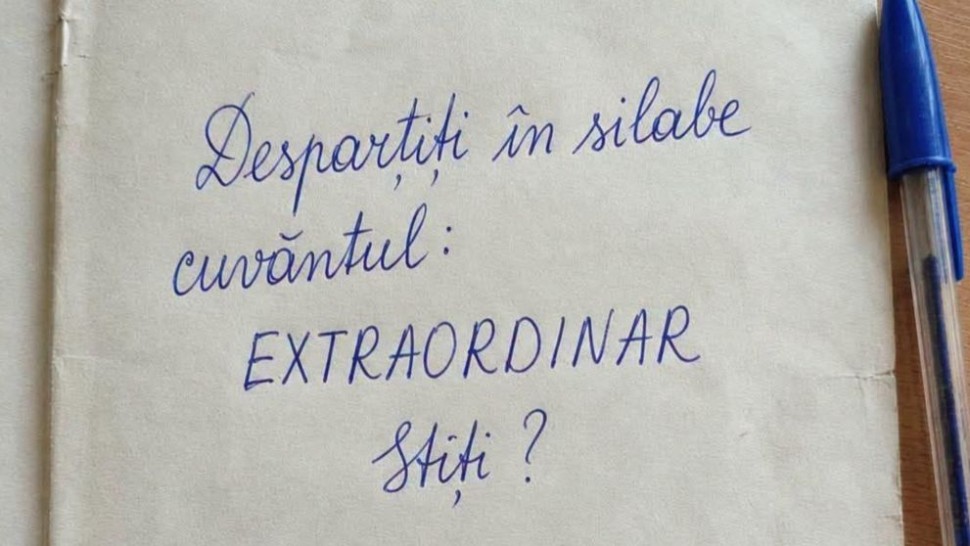 Desparțiți în silabe
cuvăntul:
EXTRAORDINAR
Stiți?